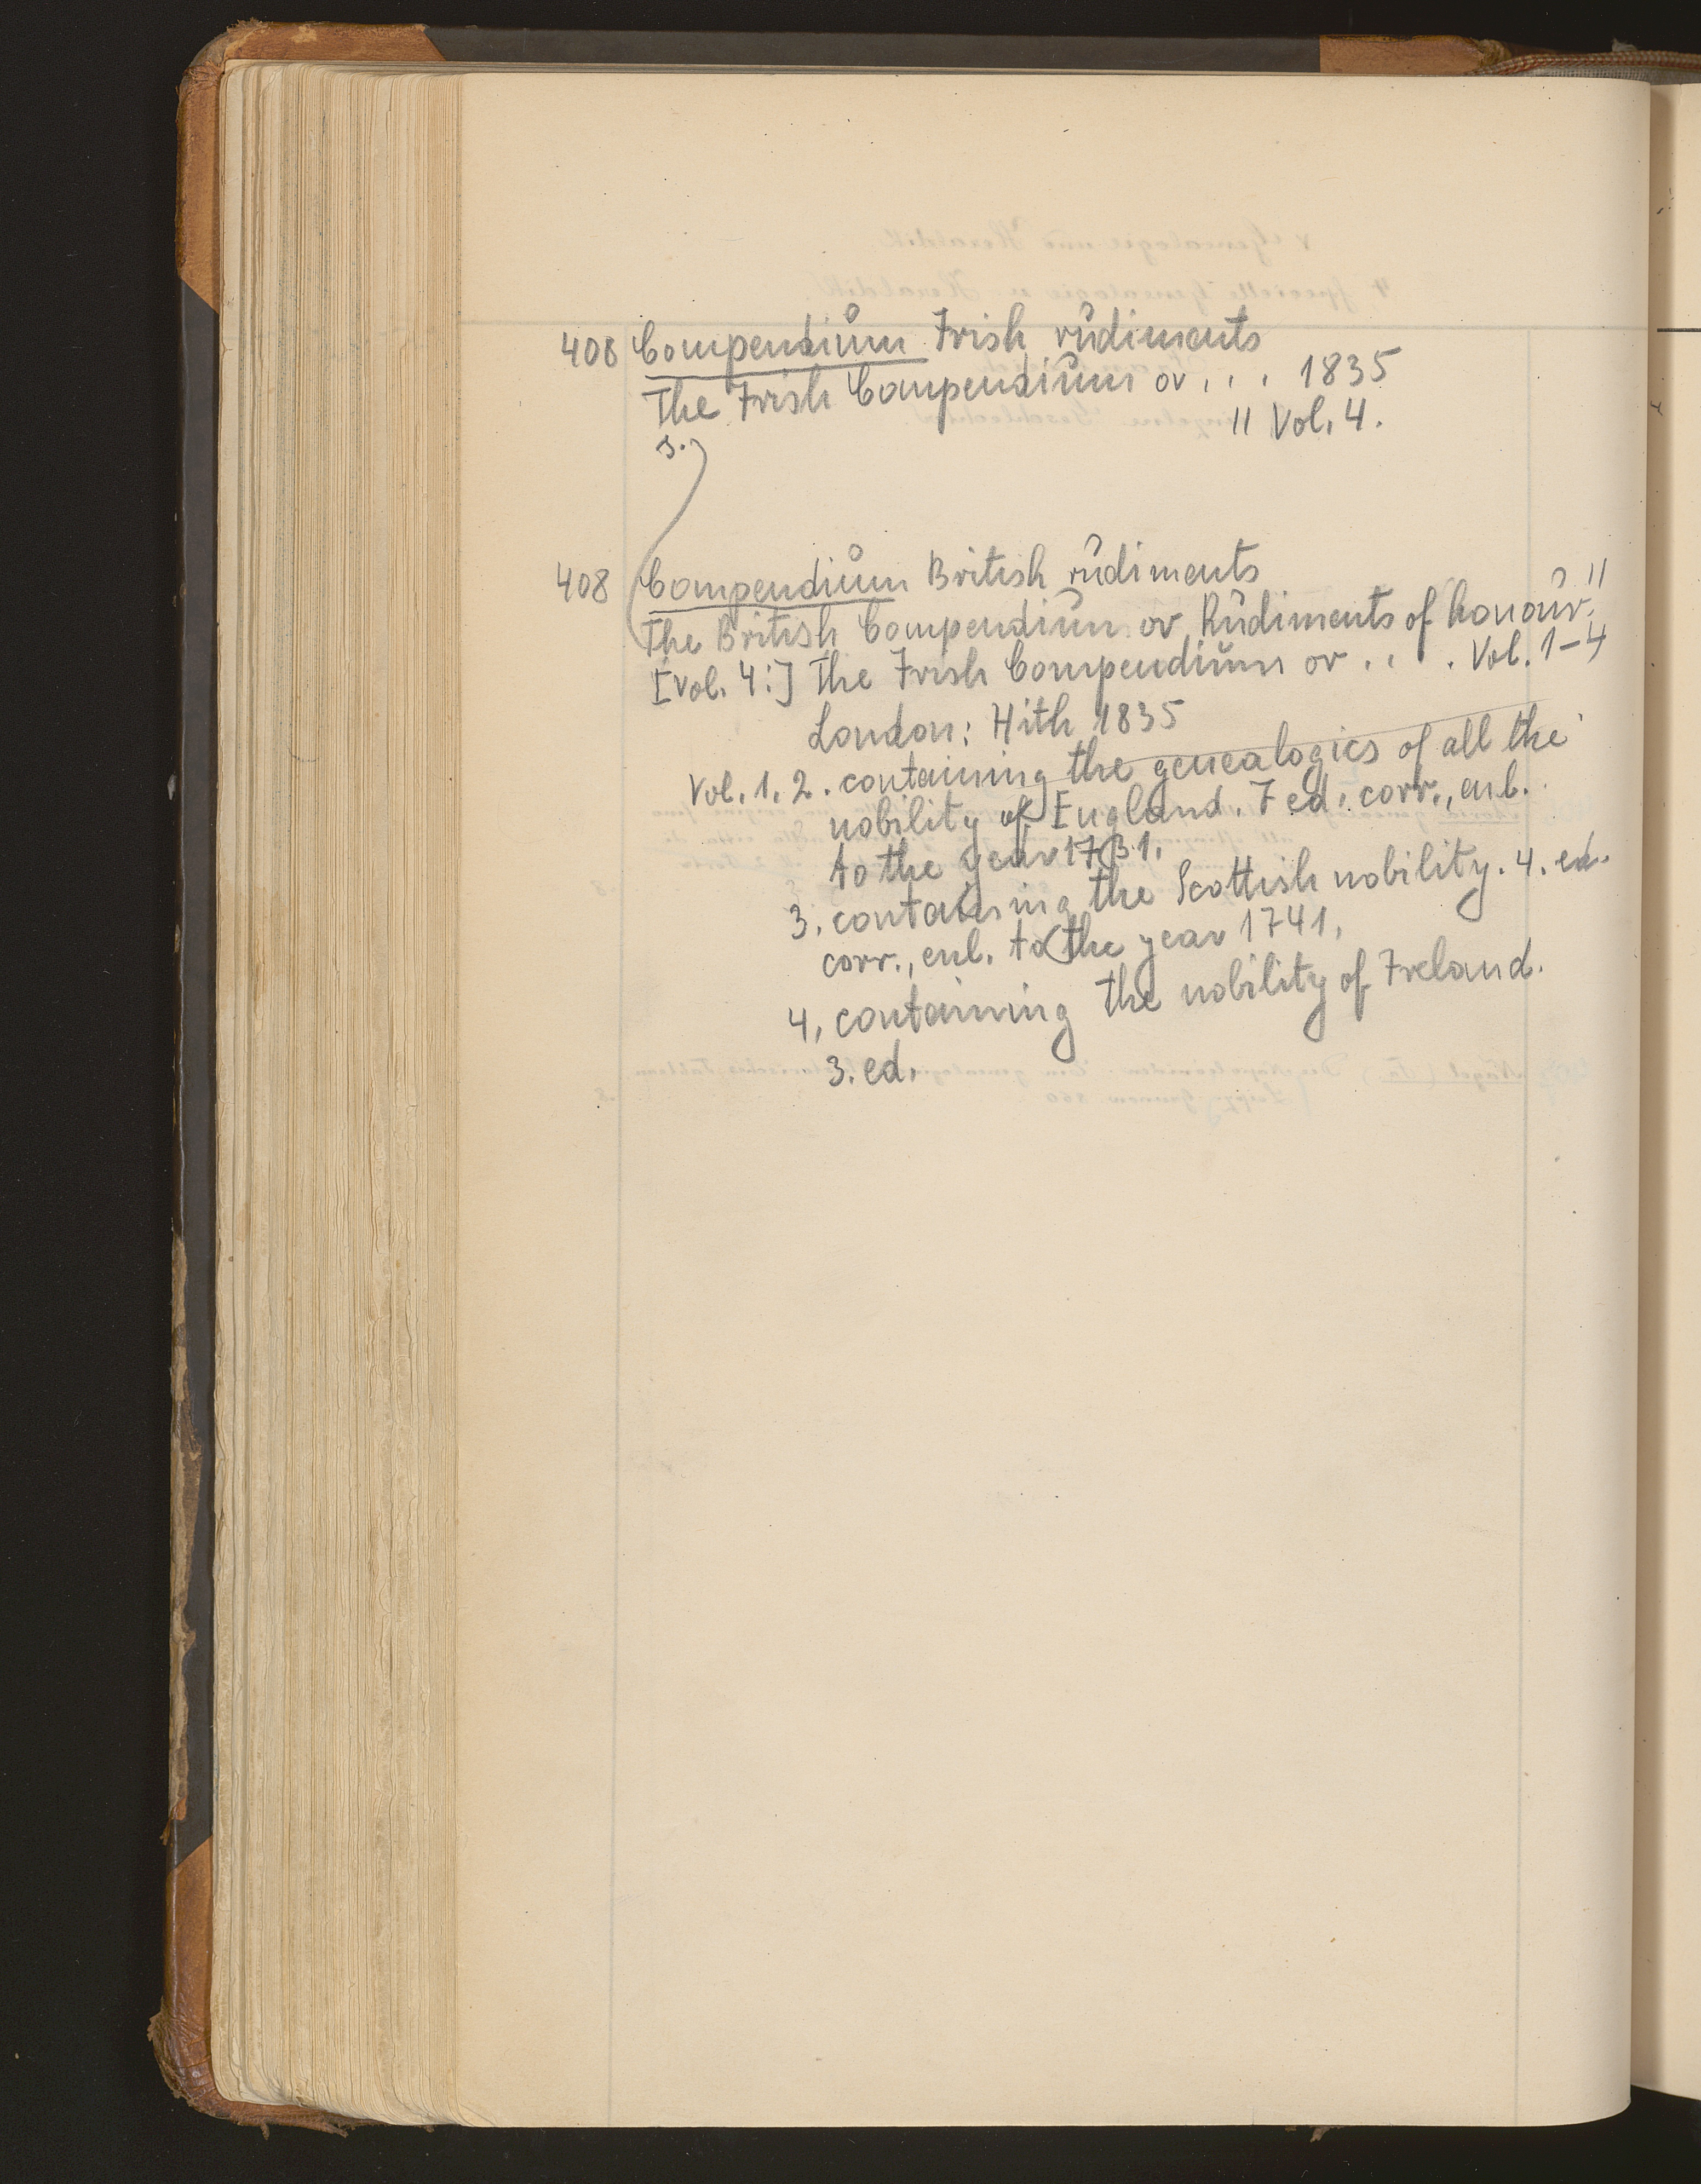 408 Compendium Irish rudiments
The Irish Compendium or . . . 1835
s. 11 Vol. 4.
408 Compendium British rudiments
The British Compendium or Rudiments of honour. 11
[vol. 4:] The Irish Compendium or . . . Vol. 1-4
London: Hith 1835
Vol. 1, 2. containing the genealogies of all the
nobility of England. 7 ed. corr., enl.
to the year 1731.
3. containing the Scottish nobility. 4. ed.
corr., enl. to the year 1741.
4. containing the nobility of Ireland.
3. ed.